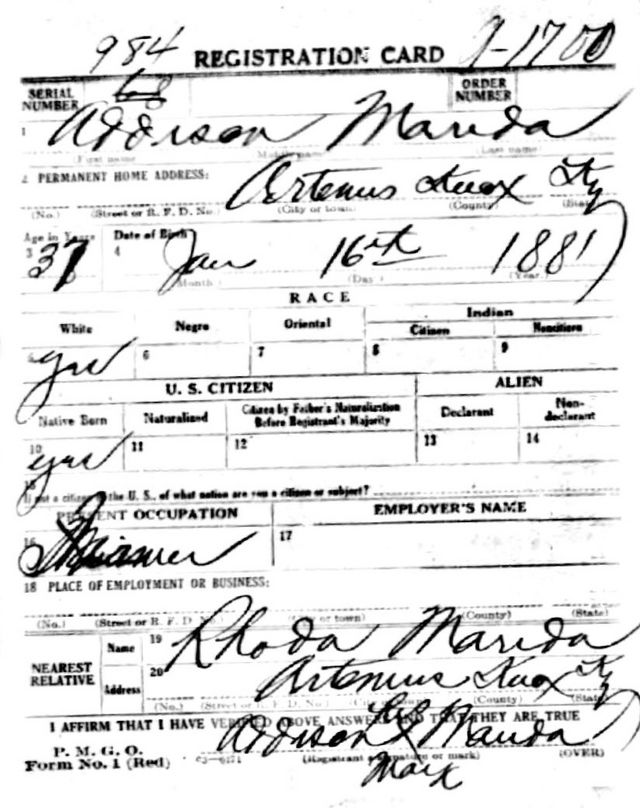 984 REGISTRATION CARD A-1700
SERIAL NUMBER 68 ORDER NUMBER
1 Addison Marida
(First name) (Middle name) (Last name)
2 PERMANENT HOME ADDRESS: Artemus Knox Ky
(No.) (Street or R. F. D. No.) (City or town) (County) (State)
Age in Years Date of Birth
3 37 4 Jan 16th 1881
(Month) (Day) (Year)
RACE
White Negro Oriental Indian
Citizen Noncitizen
5 yes 6 7 8 9
U. S. CITIZEN ALIEN
Native Born Naturalized Citizen by Father's Naturalization Before Registrant's Majority Declarant Non-declarant
10 yes 11 12 13 14
15 If not a citizen of the U. S., of what nation are you a citizen or subject?
PRESENT OCCUPATION EMPLOYER'S NAME
16 17
18 PLACE OF EMPLOYMENT OR BUSINESS:
(No.) (Street or R. F. D. No.) (City or town) (County) (State)
NEAREST RELATIVE Name 19 Rhoda Marida
Address 20 Artemus Knox Ky
(No.) (Street or R. F. D. No.) (City or town) (County) (State)
I AFFIRM THAT I HAVE VERIFIED ABOVE ANSWERS AND THAT THEY ARE TRUE
P. M. G. O.
Form No. 1 (Red) 03-6171 Addison X Marida
(Registrant's signature or mark) (OVER)
Marx